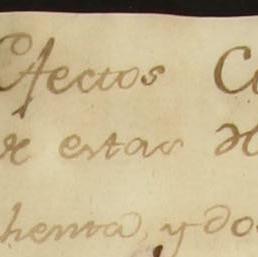 Efectos C
de estas
henta, y do